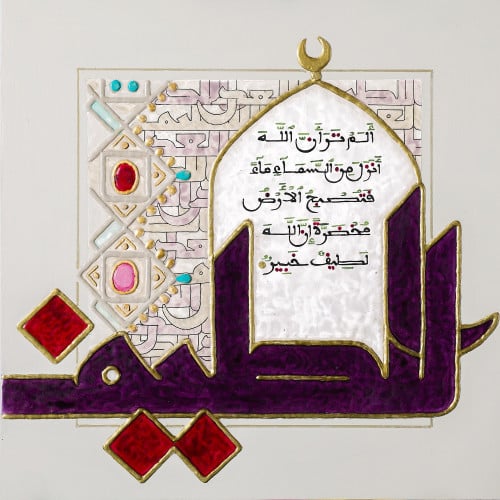 ألم تر أن الله
أنزل من السماء ماء
فتصبح الأرض
مخضرة إن الله
لطيف خبير
اللطيف